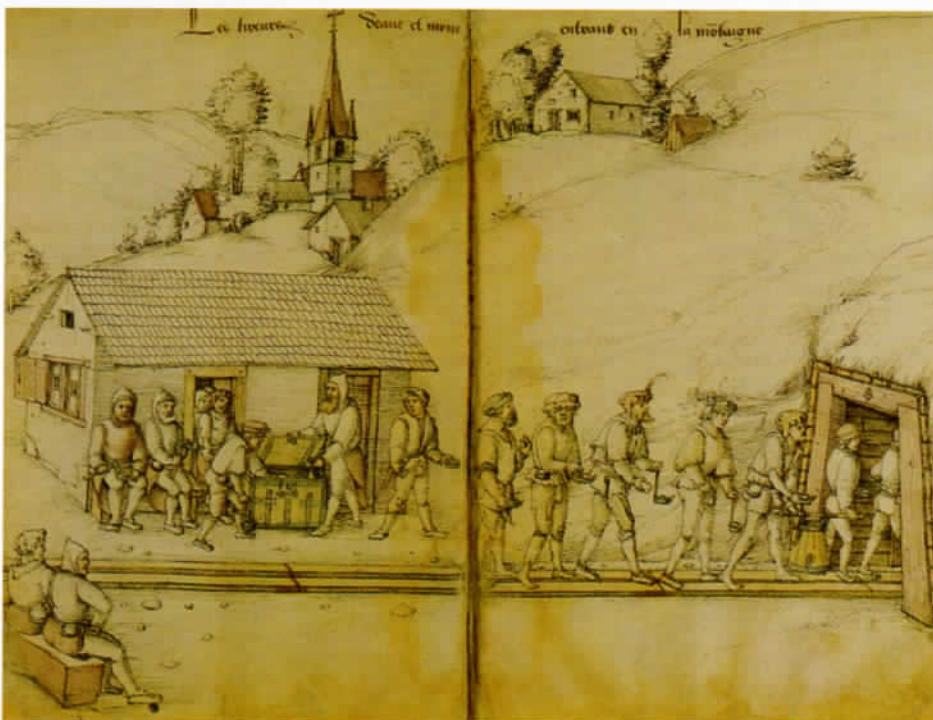 Les tireurs deaue et entrans en la mõtaigne